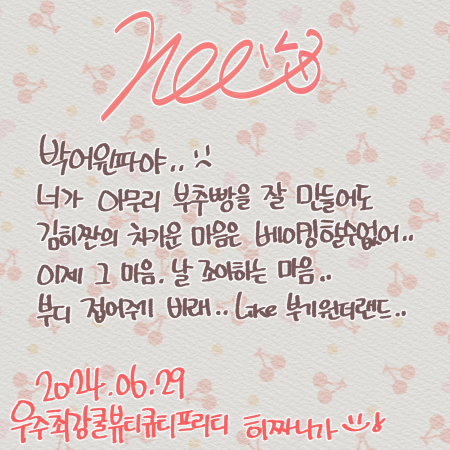 박어윈파야.. :(
너가 아무리 부추빵을 잘 만들어도
김히짠의 차가운 마음은 베이킹할수없어..
이제 그 마음. 날 조아하는 마음..
부디 접어주기 바래.. Like 부기원더랜드..
2024.06.29
우주최강쿨뷰티큐티프리티 히짜니가